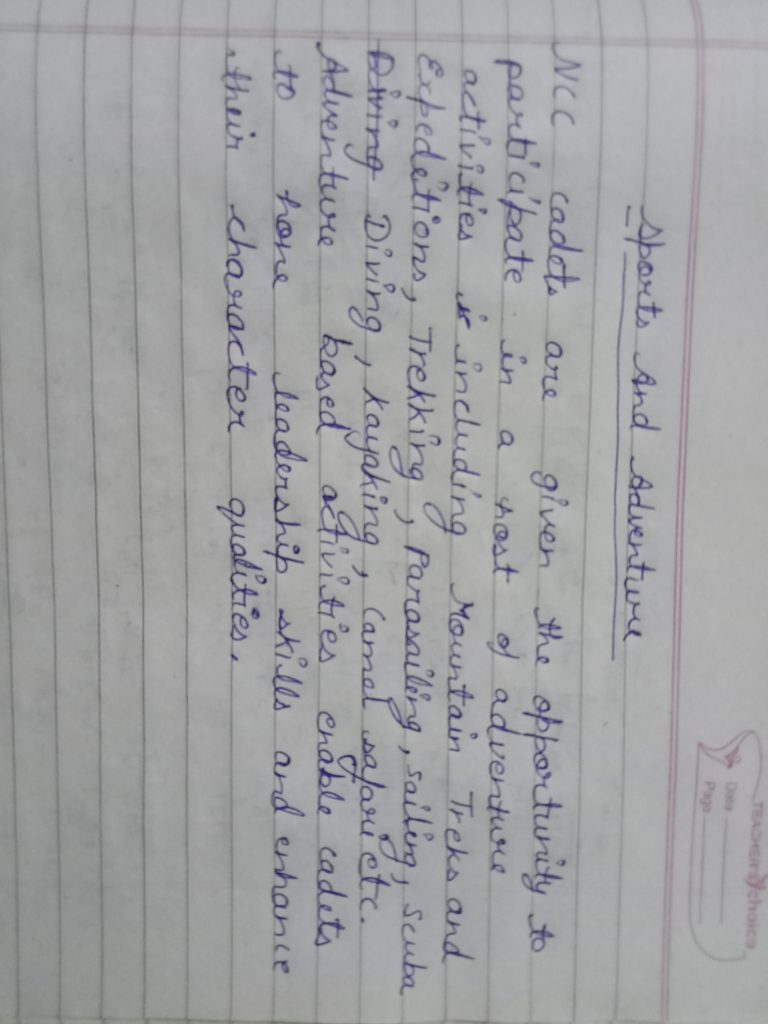 TEACHER'S choice
Date
Page
Sports And Adventure
NCC cadets are given the opportunity to
participate in a host of adventure
activities including Mountain Treks and
Expeditions, Trekking, Parasailing, Sailing, Scuba
Diving, Kayaking, Camel safari etc.
Adventure based activities enable cadets
to hone leadership skills and enhance
their character qualities.